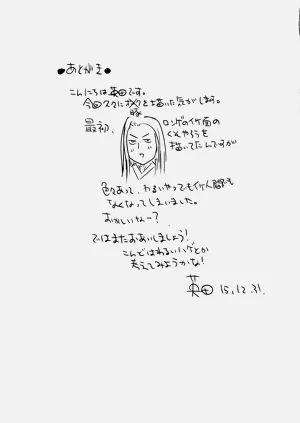 ●あとがき●
こんにちは英田です。
今回久々にオメクを描いた気がします。
最初、
ロンゲのイケ面の
くそやろうを
描いてたんですが
色々あって、わるいやつでもイケ人間でも
なくなってしまいました。
おかしいなー?
ではまたおあいしましょう!
こんどはわるいハゲとか
考えてみようかな!
英田 15.12.31.